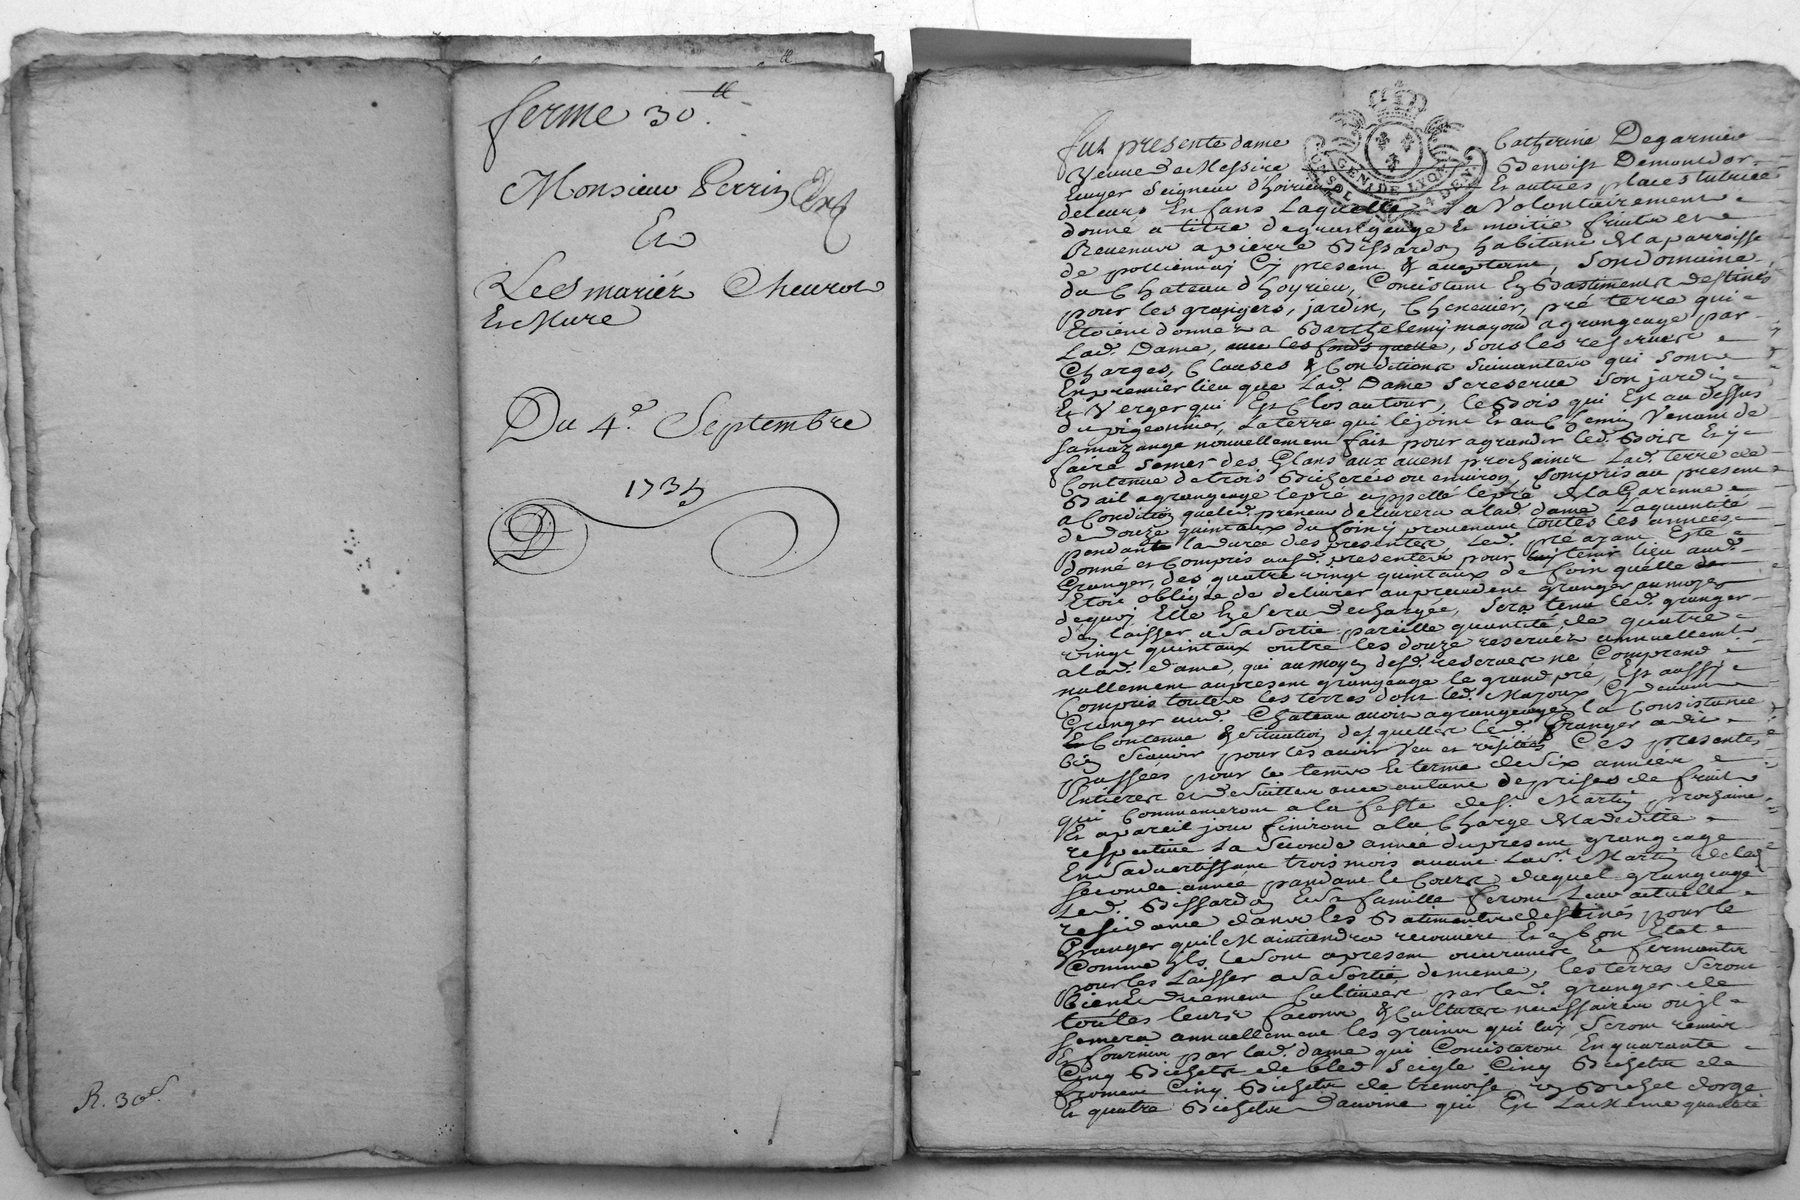 ferme 30.ᵗᵗ
Monsieur Perrin
Et
Les mariér Cheurot
Et Mure
Du 4.e Septembre
1735
R. 30.s
fut presente dame Catherine Degarnier
Veuve de Messire Benoist Demontdor
Ecuyer Seigneur d'hoirieu Et autres places tutrice
GEN. DE LYON
de leurs Enfans Laquelle a Volontairement
donné a titre de grangeage Et moitié fruits et
Revenus a pierre Bissardon habitant de la parroisse
de pollienay Cy present & acceptant, son domaine
du Chateau d'hoyrieu, Concistant En Bastiments destinés
pour les grangers, jardin, Chenevier, pré terre qui
Etoient donnés a Barthelemy mayoud a grangeage par
Lad. Dame, sous les reserves
Charges, Clauses & Conditions suivantes qui sont
En premier lieu que Lad. Dame se reserve son jardin
Et Verger qui Est Clos autour, le Bois qui Est au dessus
du pigeonnier, La terre qui le joint Et au Chemin Venant de
nouvellement fait pour agrandir led. Bois Et y
faire semer des Glans aux avent prochaines Lad. terre de
Contenue de trois Bicherées ou environ, Compris au present
Bail a grangeage le pré appellé le pré de la Garenne
a Condition que led. preneur delivrera a lad. dame La quantité
de douze quintaux du foin y provenant toutes les années
pendant la durée des presentes Led. pré ayant Esté
donné et Compris aud. presentes pour tenir lieu aud.
Granger, des quatre vingt quintaux de foin quelle
Etoit obligée de delivrer au precedent granger au moyen
dequoy Elle En Sera dechargée, Sera tenu led. granger
d'en laisser a Sa Sortie pareille quantité de quatre
vingt quintaux outre les douze reservés annuellement
a lad. dame, qui au moyen desd. reserves ne Comprend
nullement au present grangeage le grand pré, Est aussy
Compris toutes les terres dont led. Mayoux Cy devant
Granger aud. Chateau avoit a grangeage la Consistance
Contenue & Situation desquelles led. Granger a dit
bien Scavoir pour les avoir Veu et visités Ces presentes
passées pour le tems Et terme de Six années
Entieres et de Suitte avec autant de prises de fruits
qui Commenceront a la feste de St. Martin prochaine
Et a pareil jour finiront a la Charge de la deditte
respective La Seconde année du present grangeage
En S'advertissant trois mois avant Lad. St. Martin de lad.
Seconde année pendant le Cours duquel grangeage
Led. Bissardon Et Sa famille feront Leur actuelle
residance dans les Batiments destinés pour le
Granger quil Maintiendra recouvert Et en bon Etat
Comme ils le Sont a present ouvrants Et fermants
pour les Laisser a Sa Sortie de meme, les terres Seront
bien Et duement Cultivées par led. granger de
toutes leurs facons & Cultures necessaires ou il
Semera annuellement les grains qui luy Seront remis
Et fournis par lad. dame qui Concisteront En quarante
Cinq Bichets de bled Seigle Cinq Bichets de
froment Cinq Bichets de tremoise, un Bichet dorge
Et quatre Bichets d'avoine qui Est La meme quantité